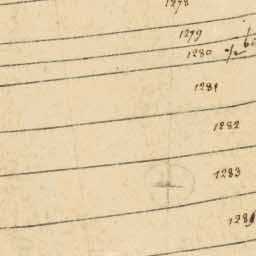 1278
1279
1280
1281
1282
1283